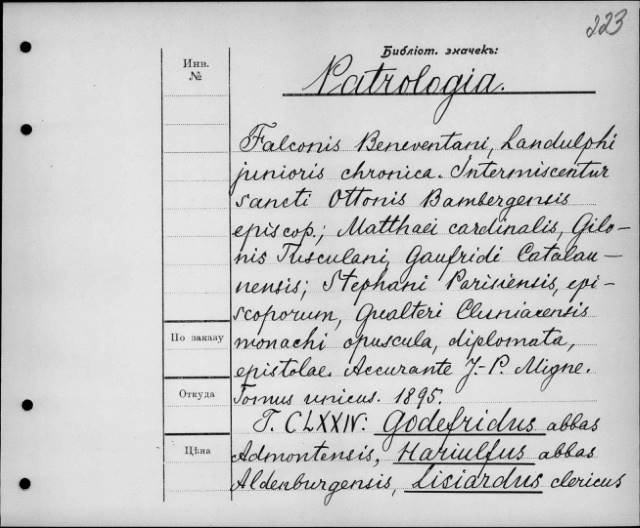 223
Библіот. значекъ:
Инв.
№
Patrologia.
Falconis Beneventani, Landulphi
junioris chronica. Intermiscentur
sancti Ottonis Bambergensis
episcop.; Matthaei cardinalis, Gilo-
nis Tusculani, Gaufridi Catalau-
nensis; Stephani Parisiensis, epi-
scoporum, Gualteri Cluniacensis
monachi opuscula, diplomata,
epistolae. Accurante J.-P. Migne.
Tomus unicus. 1895.
T. CLXXIV: Godefridus abbas
Admontensis, Hariulfus abbas
Aldenburgensis, Lisiardus clericus
По заказу
Откуда
Цѣна